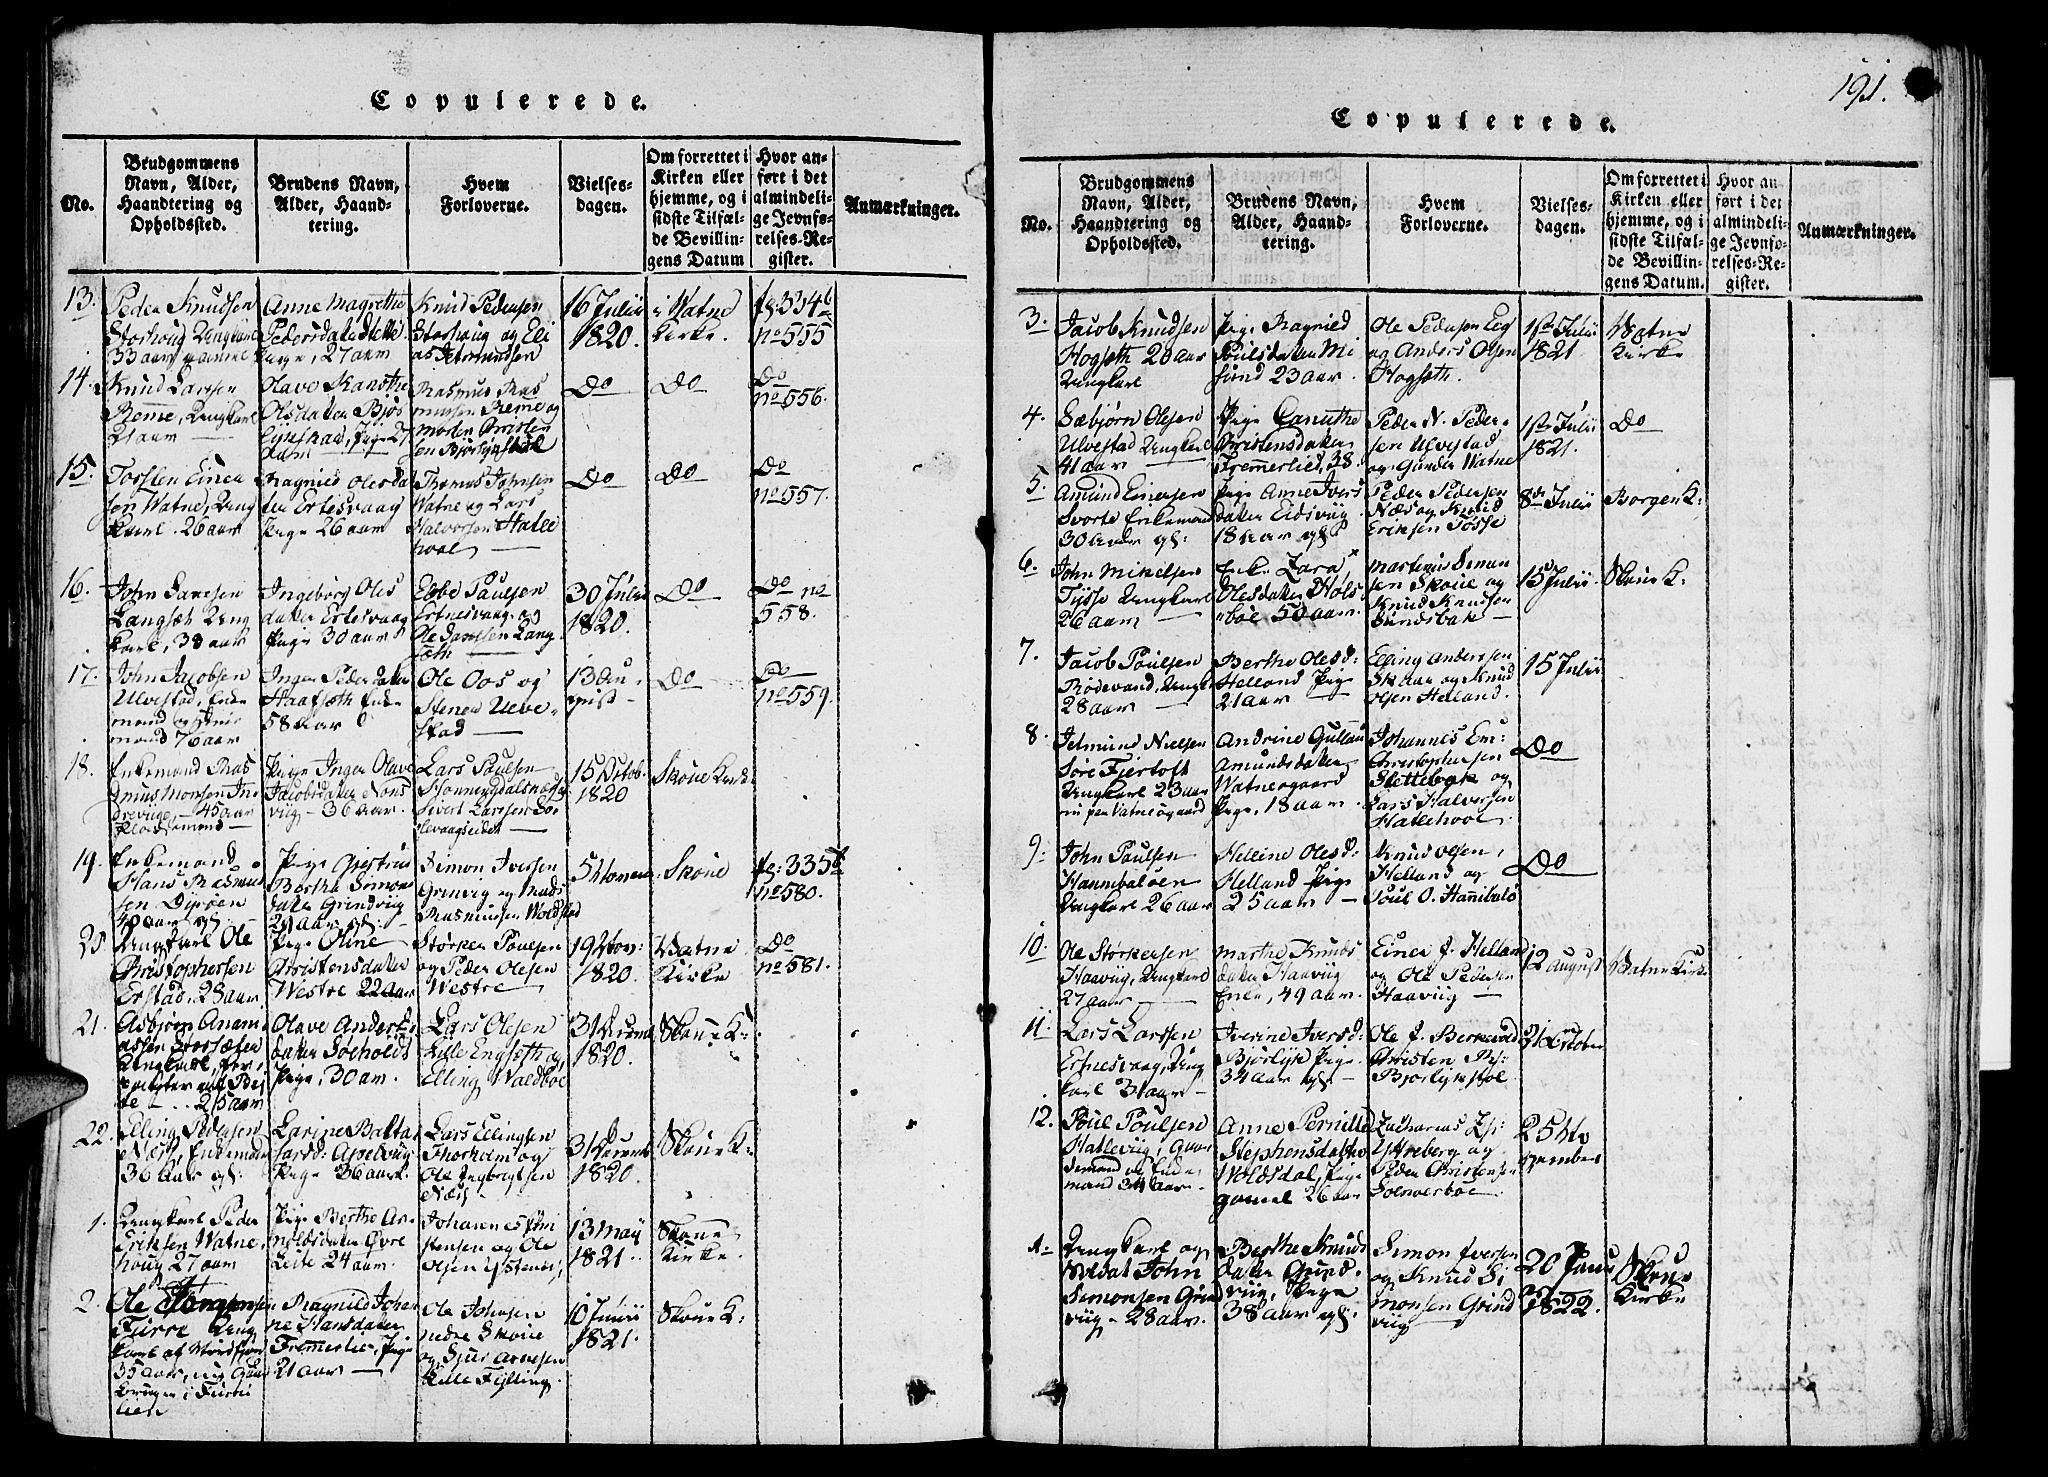 Copulerede.
No.
Brudgommens
Navn, Alder,
Haandtering og
Opholdssted.
Brudens Navn,
Alder, Haand-
tering.
Hvem
Forloverne.
Vielses-
dagen.
Om forrettet i
Kirken eller
hjemme, og i
sidste Tilfæl-
de Bevillin-
gens Datum
Hvor an-
ført i det
almindeli-
ge Jevnfø-
relses-Re-
gister.
Anmærkninger.
13.
Peder Knudsen
Storhoug Ungkarl
33 aar gammel
Anne Magrethe
Pedersdatter
Pige, 27 aar
Knud Pedersen
Storhaug og Eli
as Jetmundsen
16 Julii
1820.
i Watne
Kirke.
fg: 334
no 555
14.
Knud Larssen
Reme, Ungkarl
21 aar
Olave
Olsdatter Bjør
Pige 27
aar
Rasmus Ras
mussen Reme og
Morten Christen
sen
Do
Do
Do
no 556.
15.
Torsten Einer
sen Watne, Ung
karl. 26 aar
Ragnied Olesda
ter Ertesvaag
Pige 26 aar
Thomas Johnsen
Watne og Lars
Halvorsen Hatle
hoel
Do
Do
Do
no 557.
16.
John
Langseth Ung
karl, 38 aar
Ingeborg Oles
datter Ertesvaag
Pige 30 aar
Ebbe Poulsen
Ertnesvaag og
Ole Lang
seth
30 Julii
1820.
Do
Do no
558.
17.
John Jacobsen
Ulvestad, Enke
mand og
mand 76 aar
Inger Pedersdatter
Haafsæth Enke
58 aar
Ole Oos og
Stener Ulve-
stad
13 Au-
gust
Do
Do
no 559.
18.
Enkemand Ras
mus Monsen In
drevige, 45 aar
Pige Inger Olave
Jacobsdatter Nons
viig 36 aar.
Lars Poulsen
Skonningdalsnæs og
Sivert Larssen Sol
levaagseidet
15 Octob.
1820
Skoue Kirke
19.
Enkemand
Hans Rasmus
sen Dyrøen
40 aar gl:
Pige Giertrud
Berthe Simons
datter Grindviig
29 aar gl:
Simon Iversen
Grinvig og Mads
Rasmussen Woldstad
5 Novem.
Skoue
fg: 335
no 580.
20
Ungkarl Ole
Christophersen
Erstad 28 aar
Pige Oline
Christensdatter
Westre 22 aar
Størker Poulsen
og Peder Olesen
Westre
19 Nov:
1820.
Watne
Kirke
Do
no 581.
21.
Asbjørn Anani
assen
Ungkarl, for-
25 aar
Olave Anders
datter Søeholdt
Pige, 30 aar.
Lars Olesen
Lille Engsæth og
Elling Waldboe
31 Decemb
1820.
Skoue K:
22.
Elling Pedersen
Næss, Enkemand
36 aar gl:
Larine Baltza
sard: Apelviig
Pige 36 aar.
Lars Ellingsen
Thorholm og
Ole Ingbrigtsen
Næss
31 Decemb
1820.
Skoue K:
1.
Ungkarl Peder
Eriksen Watne-
houg 27 aar
Pige Berthe Ar-
noldsdatter Øvre
Leite 24 aar.
Johannes
og Ole
Olsen
13 May
1821.
Skoue
Kirke.
2.
Ole Jørgensen
Furre Ung
karl af Nordfjor
35 aar, nu
i
Ragnild Johan
ne Hansdatter
Fremerlie, Pige
21 aar
Ole Johnsen
nedre Skoue
og Sjur Arnesen
Lille Fylling.
10 Junii
1821.
Skoue K:
191.
Copulerede.
No.
Brudgommens
Navn, Alder,
Haandtering og
Opholdssted.
Brudens Navn,
Alder, Haand-
tering.
Hvem
Forloverne.
Vielses-
dagen.
Om forrettet i
Kirken eller
hjemme, og i
sidste Tilfæl-
de Bevillin-
gens Datum.
Hvor an-
ført i det
almindeli-
ge Jevnfo-
relses-Re-
gister.
Anmærkninger.
3.
Jacob Knudsen
Hogseth 20 aar
Ungkarl
Pige Ragnied
Poulsdatter Mi
sund 23 aar.
Ole Pedersen Leg
og Anders Olsen
Hogseth.
1ste Julii
1821.
Watne
Kirke
4.
Sæbjørn Olesen
Ulvestad Ungkarl
41 aar
Pige Canuthe
Christensdatter
Fremerlied, 38.
Peder N. Peder-
sen Ulvestad
og Gunder Watne
1ste Julii
1821.
Do
5
Amund Einersen
Svorte Enkemand
30 aar gl:
Pige Anne Ivers
datter Eidsviig
18 aar gl:
Peder Pedersen
Næs og Knud
Eriksen Tøsse
8de Julii
Borgen K:
6.
John Mikelsen
Tysse Ungkarl
26 aar
Enke Zara
Olesdatter Hols-
boe 50 aar.
Martinus Simon
sen Skoue og
Knud Knudsen
Sundsbak
15 Julii.
Skoue K:
7.
Jacob Poulsen
Rødevand, Ungkarl
28 aar
Berthe Olesd:
Helland Pige
21 aar
Elling Andersen
Skaar og Knud
Olsen Helland.
15 Julii
8.
Jetmund Nielsen
Søre Fjertoft
Ungkarl 23 aar
nu paa Watneogaard
Andrine Gullau
Amundsdatter
Watneogaard
Pige, 18 aar.
Johannes Em:
Christophersen
Slettebak og
Lars Halvorsen
Hatlehoel.
Do
9:
John Poulsen
Hannibaløen
Ungkarl 26 aar
Helline Olesd:
Helland Pige
25 aar
Knud Olsen
Helland og
Poul O. Hannibalø
Do
10.
Ole Størkersen
Haaviig, Ungkarl
27 aar
Marthe Knuds
datter Haaviig
Enke, 49 aar.
Einer J. Helland
og Ole Pedersen
Haaviig
12 August
Watne Kirke
11.
Lars Larssen
Ertnesvaag, Ung
karl 31 aar
Iverine Iversd:
Bjørlyk Pige
34 aar gl:
Ole J. Berkevold
Christen
Bjørlykhoel.
31 October
12.
Poul Poulsen
Hatleviig, Gaar
demand og Enke-
mand 34 aar
Anne Pernille
Stephensdatter
Woldsdal, Pige
gamel 26 aar
Zacharias
Ytreberg og
Peder Christensen
Solenerboe
25 No
vember
1.
Ungkarl og
Soldat John
Simonsen Grind
viig 28 aar.
Berthe Knuds
datter Grind-
viig, Pige
38 aar gl:
Simon Iversen
og Knud Si
monsen Grind
viig
20 Janu
1822.
Skoue
Kirke